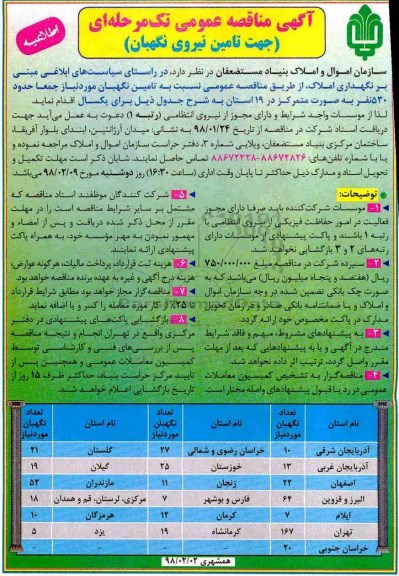 آگهی مناقصه عمومی تک‌مرحله‌ای
(جهت تامین نیروی نگهبان)
اطلاعیه
سازمان اموال و املاک بنیاد مستضعفان در نظر دارد، در راستای سیاست‌های ابلاغی مبنی
بر نگهداری املاک، از طریق مناقصه عمومی نسبت به تامین نگهبان موردنیاز جمعا حدود
۵۳۰نفر به صورت متمرکز در ۱۹ استان به شرح جدول ذیل برای یکسال اقدام نماید.
لذا از موسسات واجد شرایط و دارای مجوز از نیروی انتظامی (رتبه ۱) دعوت به عمل می‌آید جهت
دریافت اسناد شرکت در مناقصه از تاریخ ۹۸/۰۱/۲۴ به نشانی: میدان آرژانتین، ابتدای بلوار آفریقا،
ساختمان مرکزی بنیاد مستضعفان، ویلایی شماره ۳، دفتر حراست سازمان اموال و املاک مراجعه نموده و
یا با شماره تلفن‌های: ۸۸۶۷۲۸۲۶-۸۸۶۷۲۳۲۸ تماس حاصل نمایند. شایان ذکر است مهلت تکمیل و
تحویل اسناد و مدارک ذیل حداکثر تا پایان وقت اداری (ساعت ۱۶:۳۰) روز دوشنبه مورخ ۹۸/۰۲/۰۹ می‌باشد
توضیحات:
۱- موسسات شرکت‌کننده باید صرفا دارای مجوز
فعالیت در امور حفاظت فیزیکی از نیروی انتظامی با
رتبه ۱ باشند و پاکت پیشنهادی از موسسات دارای
رتبه‌های ۲ و ۳ بازگشایی نخواهد شد.
۲- سپرده شرکت در مناقصه مبلغ ۷۵۰/۰۰۰/۰۰۰
ریال (هفتصد و پنجاه میلیون ریال) می‌باشد که به
صورت چک بانکی تضمین شده در وجه سازمان اموال
و املاک و یا ضمانتنامه بانکی صادر و در زمان تحویل
مدارک در پاکت مخصوص خود ارائه گردد.
۳- به پیشنهادهای مشروط، مبهم و فاقد شرایط
مندرج در آگهی و یا به پیشنهادهایی که بعد از مهلت
مقرر واصل گردد، ترتیب اثر داده نخواهد شد.
۴- مناقصه‌گزار به تشخیص کمیسیون معاملات
عمومی در رد یا قبول پیشنهادهای واصله مختار است.
۵- شرکت کنندگان موظفند اسناد مناقصه که
مشتمل بر سایر شرایط مناقصه است را در مهلت
مقرر از محل ذکر شده دریافت و پس از امضاء و
ممهور نمودن به مهر موسسه خود، به همراه پاکت
پیشنهادی ارائه نمایند.
۶- هزینه ثبت قرارداد، پرداخت مالیات، هرگونه عوارض،
هزینه درج آگهی و غیره به عهده برنده مناقصه خواهد بود.
۷- مناقصه گزار مجاز خواهد بود مطابق شرایط قرارداد
تا ۲۵٪ از کار مورد معامله را کسر و یا اضافه نماید.
۸- بازگشایی پاکت‌های پیشنهادی در دفتر
مرکزی واقع در تهران انجام و نتیجه مناقصه
پس از بررسی‌های فنی و کارشناسی توسط
کمیسیون معاملات عمومی و همچنین پس از
تایید مرکز حراست بنیاد، حداکثر ظرف ۱۵ روز از
تاریخ بازگشایی اعلام خواهد شد.
نام استان تعداد نگهبان موردنیاز نام استان تعداد نگهبان موردنیاز نام استان تعداد نگهبان موردنیاز
آذربایجان شرقی ۱۰ خراسان رضوی و شمالی ۲۷ گلستان ۲۱
آذربایجان غربی ۱۳ خوزستان ۲۵ گیلان ۱۹
اصفهان ۲۲ زنجان ۱۱ مازندران ۵۲
البرز و قزوین ۶۴ فارس و بوشهر ۷ مرکزی، لرستان، قم و همدان ۱۸
ایلام ۷ کرمان ۱۲ هرمزگان ۱۰
تهران ۱۶۷ کرمانشاه ۱۹ یزد ۵
خراسان جنوبی ۲۰ - - - -
همشهری ۹۸/۰۲/۰۲